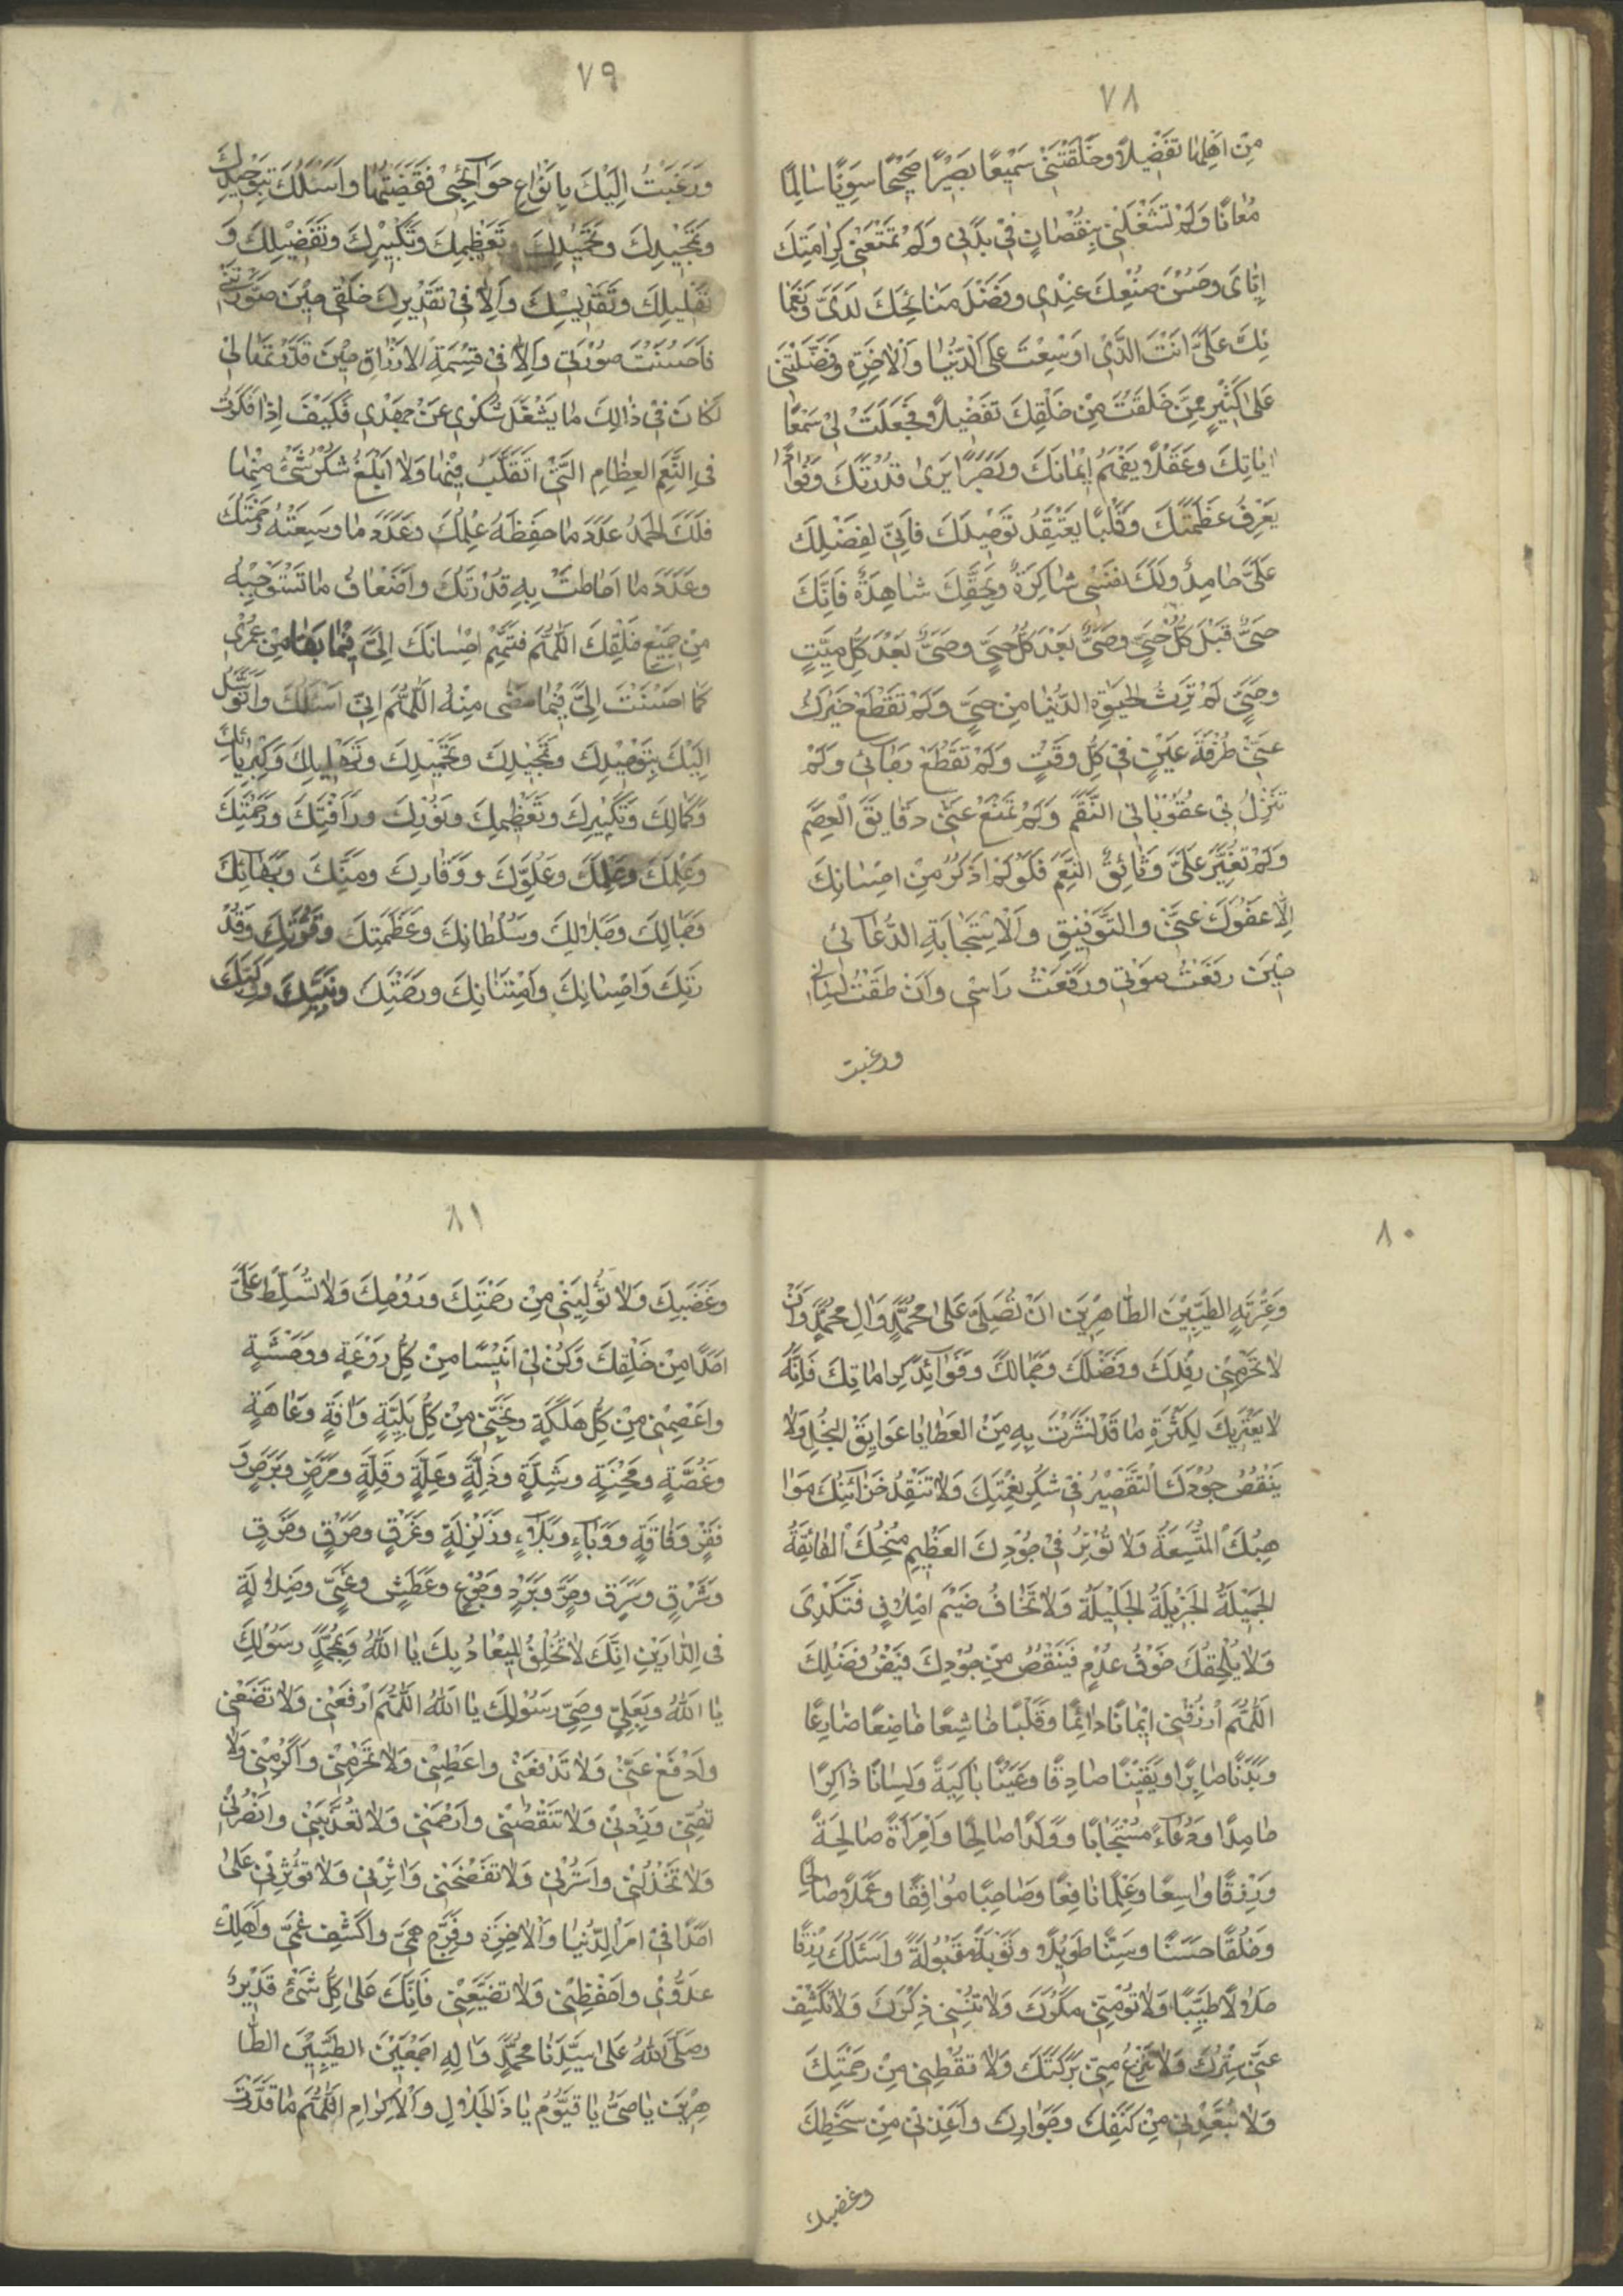 ٧٨
مِنْ اَهْلِهٰا تَفْضٖيلًا وَخَلَقْتَنٖى سَمٖيعًا بَصٖيرًا صَحٖيحًا سَوِيًّا سٰالِمًا
مُعٰافًا وَلَمْ تَشْغَلْنٖى بِنُقْصٰانٍ فٖى بَدَنٖى وَلَمْ تَمْنَعْنٖى كَرٰامَتِكَ
اِيّٰاىَ وَحُسْنَ صُنْعِكَ عِنْدٖى وَفَضْلَ مَنٰائِحِكَ لَدَىَّ وَنَعْمٰا
ئِكَ عَلَىَّ اَنْتَ الَّذٖى اَوْسَعْتَ عَلَىَّ الدُّنْيٰا وَالْاٰخِرَةِ وَفَضَّلْتَنٖى
عَلٰى كَثٖيرٍ مِمَّنْ خَلَقْتَ مِنْ خَلْقِكَ تَفْضٖيلًا فَجَعَلْتَ لٖى سَمْعًا
اٰيٰاتِكَ وَعَقْلًا يَفْهَمُ اٖيمٰانَكَ وَبَصَرًا يَرٰى قُدْرَتَكَ وَفُؤٰادًا
يَعْرِفُ عَظَمَتَكَ وَقَلْبًا يَعْتَقِدُ تَوْحٖيدَكَ فَاِنّٖى لِفَضْلِكَ
عَلَىَّ حٰامِدٌ وَلَكَ نَفْسٖى شٰاكِرَةٌ وَبِحَقِّكَ شٰاهِدَةٌ فَاِنَّكَ
حَىٌّ قَبْلَ كُلِّ حَىٍّ وَحَىٌّ بَعْدَ كُلِّ حَىٍّ وَحَىٌّ بَعْدَ كُلِّ مَيِّتٍ
وَحَىٌّ لَمْ تَرِثِ الْحَيٰوةِ الدُّنْيٰا مِنْ حَىٍّ وَلَمْ تَقْطَعْ خَيْرَكَ
عَنّٖى طَرْفَةَ عَيْنٍ فٖى كُلِّ وَقْتٍ وَلَمْ تَقْطَعْ رَجٰآئٖى وَلَمْ
تُنْزِلْ بٖى عُقُوبٰاتِ النِّقَمِ وَلَمْ تَمْنَعْ عَنّٖى دَقٰايِقَ الْعِصَمِ
وَلَمْ تُغَيِّرْ عَلَىَّ وَثٰائِقَ النِّعَمِ فَلَوْ لَمْ اَذْكُرْ مِنْ اِحْسٰانِكَ
اِلّٰا عَفْوَكَ عَنّٖى وَالتَّوْفٖيقِ وَالْاِسْتِجٰابَةِ الدُّعٰآئٖى
حٖينَ رَفَعْتُ صَوْتٖى وَرَفَعْتُ رَاْسٖى وَاَنْطَقْتَ لِسٰانٖى
ورغبت
٧٩
وَرَغِبْتُ اِلَيْكَ بِاَنْوٰاعِ حَوٰآئِجٖى فَقَضَيْتَهٰا وَاَسْئَلُكَ بِتَوْحٖيدِكَ
وَتَمْجٖيدِكَ وَتَحْمٖيدِكَ وَتَعْظٖيمِكَ وَتَكْبٖيرِكَ وَتَفْضٖيلِكَ وَ
تَهْلٖيلِكَ وَتَقْدٖيسِكَ وَاِلّٰا فٖى تَقْدٖيرِكَ خَلْقٖى حٖينَ صَوَّرْتَنٖى
فَاَحْسَنْتَ صُورَتٖى وَاِلّٰا فٖى قِسْمَةِ الْاَرْزٰاقِ حٖينَ قَدَّرْتَهٰا لٖى
لَكٰانَ فٖى ذٰالِكَ مٰا يَشْغَلُ شُكْرٖى عَنْ جَهْدٖى فَكَيْفَ اِذٰا فَكَّرْتُ
فِى النِّعَمِ الْعِظٰامِ الَّتٖى اَتَقَلَّبُ فٖيهٰا وَلٰا اَبْلُغُ شُكْرَ شَىْءٍ مِنْهٰا
فَلَكَ الْحَمْدُ عَدَدَ مٰا حَفِظَهُ عِلْمُكَ وَعَدَدَ مٰا وَسِعَتْهُ رَحْمَتُكَ
وَعَدَدَ مٰا اَحٰاطَتْ بِهِ قُدْرَتُكَ وَاَضْعٰافُ مٰا تَسْتَوْجِبُهُ
مِنْ جَمٖيعِ خَلْقِكَ اَللّٰهُمَّ فَتَمِّمْ اِحْسٰانَكَ اِلَىَّ فٖيمٰا بَقٰا مِنْ عُمْرٖى
كَمٰا اَحْسَنْتَ اِلَىَّ فٖيمٰا مَضٰى مِنْهُ اَللّٰهُمَّ اِنّٖى اَسْئَلُكَ وَاَتَوَسَّلُ
اِلَيْكَ بِتَوْحٖيدِكَ وَتَمْجٖيدِكَ وَتَحْمٖيدِكَ وَتَهْلٖيلِكَ وَكِبْرِيٰائِكَ
وَكَمٰالِكَ وَتَكْبٖيرِكَ وَتَعْظٖيمِكَ وَنُورِكَ وَرَاْفَتِكَ وَرَحْمَتِكَ
وَعِلْمِكَ وَحِلْمِكَ وَعُلُوِّكَ وَوَقٰارِكَ وَمَنِّكَ وَبَهٰآئِكَ
وَجَمٰالِكَ وَجَلٰالِكَ وَسُلْطٰانِكَ وَعَظَمَتِكَ وَقُوَّتِكَ وَقُدْ
رَتِكَ وَاِحْسٰانِكَ وَاِمْتِنٰانِكَ وَرَحْمَتِكَ وَنَبِيِّكَ
٨٠
وَعِتْرَتِهِ الطَّيِّبٖينَ الطّٰاهِرٖينَ اَنْ تُصَلِّىَ عَلٰى مُحَمَّدٍ وَاٰلِ مُحَمَّدٍ وَاَنْ
لٰا تَحْرِمْنٖى رِفْدَكَ وَفَضْلَكَ وَجَمٰالَكَ وَفَوٰآئِدَ كَرٰامٰاتِكَ فَاِنَّهُ
لٰا يَعْتَرٖيكَ لِكَثْرَةِ مٰا قَدْ نَشَرْتَ بِهِ مِنَ الْعَطٰايٰا عَوٰايِقَ الْبُخْلِ وَلٰا
يَنْقُصُ جُودَكَ التَّقْصٖيرُ فٖى شُكْرِ نِعْمَتِكَ وَلٰا تَنْفَدُ خَزٰآئِنَكَ مَوٰا
هِبُكَ الْمُتَّسِعَةُ وَلٰا تُؤْثِرُ فٖى جُودِكَ الْعَظٖيمِ مِنَحُكَ الْفٰائِقَةُ
الْجَمٖيلَةُ الْجَزٖيلَةُ الْجَلٖيلَةُ وَلٰا تَخٰافُ ضَيْمَ اِمْلٰاقٍ فَتُكْدٖى
وَلٰا يَلْحَقُكَ خَوْفُ عُدْمٍ فَيَنْقُصُ مِنْ جُودِكَ فَيْضُ فَضْلِكَ
اَللّٰهُمَّ ارْزُقْنٖى اٖيمٰانًا دٰائِمًا وَقَلْبًا خٰاشِعًا خٰاضِعًا ضٰارِعًا
وَبَدَنًا صٰابِرًا وَيَقٖينًا صٰادِقًا وَعَيْنًا بٰاكِيَةً وَلِسٰانًا ذٰاكِرًا
حٰامِدًا وَدُعٰآءً مُسْتَجٰابًا وَوَلَدًا صٰالِحًا وَاِمْرَاَةً صٰالِحَةً
وَرِزْقًا وٰاسِعًا وَعِلْمًا نٰافِعًا وَصٰاحِبًا مُوٰافِقًا وَعَمَلًا صٰالِحًا
وَخُلُقًا حَسَنًا وَسِنًّا طَوٖيلًا وَتَوْبَةً مَقْبُولَةً وَاَسْئَلُكَ رِزْقًا
حَلٰالًا طَيِّبًا وَلٰا تُؤْمِنّٖى مَكْرَكَ وَلٰا تُنْسِنٖى ذِكْرَكَ وَلٰا تَكْشِفْ
عَنّٖى سِتْرَكَ وَلٰا تَنْزِعْ مِنّٖى بَرَكَتَكَ وَلٰا تُقْنِطْنٖى مِنْ رَحْمَتِكَ
وَلٰا تُبَعِّدْنٖى مِنْ كَنَفِكَ وَجِوٰارِكَ وَاَعِذْنٖى مِنْ سَخَطِكَ
وغضبك
٨١
وَغَضَبِكَ وَلٰا تُؤْيِسْنٖى مِنْ رَحْمَتِكَ وَرَوْحِكَ وَلٰا تُسَلِّطْ عَلَىَّ
اَحَدًا مِنْ خَلْقِكَ وَكُنْ لٖى اَنٖيسًا مِنْ كُلِّ رَوْعَةٍ وَوَحْشَةٍ
وَاعْصِمْنٖى مِنْ كُلِّ هَلَكَةٍ وَنَجِّنٖى مِنْ كُلِّ بَلِيَّةٍ وَاٰفَةٍ وَعٰاهَةٍ
وَغُصَّةٍ وَمِحْنَةٍ وَشِدَّةٍ وَذِلَّةٍ وَعِلَّةٍ وَقِلَّةٍ وَمَرَضٍ وَبَرَصٍ وَ
فَقْرٍ وَفٰاقَةٍ وَوَبٰآءٍ وَبَلٰآءٍ وَزَلْزِلَةٍ وَغَرَقٍ وَحَرَقٍ وَحَرْقٍ
وَشَرْقٍ وَسَرَقٍ وَحَرٍّ وَبَرْدٍ وَجُوعٍ وَعَطَشٍ وَغَىٍّ وَضَلٰالَةٍ
فِى الدّٰارَيْنِ اِنَّكَ لٰا تُخْلِفُ الْمٖيعٰادَ بِكَ يٰا اَللّٰهُ وَبِمُحَمَّدٍ رَسُولِكَ
يٰا اَللّٰهُ وَبِعَلِىٍّ وَصِىِّ رَسُولِكَ يٰا اَللّٰهُ اَللّٰهُمَّ ارْفَعْنٖى وَلٰا تَضَعْنٖى
وَادْفَعْ عَنّٖى وَلٰا تَدْفَعْنٖى وَاعْطِنٖى وَلٰا تَحْرِمْنٖى وَاَكْرِمْنٖى وَلٰا
تُهِنّٖى وَزِدْنٖى وَلٰا تَنْقُصْنٖى وَارْحَمْنٖى وَلٰا تُعَذِّبْنٖى وَانْصُرْنٖى
وَلٰا تَخْذُلْنٖى وَاسْتُرْنٖى وَلٰا تَفْضَحْنٖى وَاٰثِرْنٖى وَلٰا تُؤْثِرْنٖى عَلٰى
اَحَدًا فٖى اَمْرِ الدُّنْيٰا وَالْاٰخِرَةِ وَفَرِّجْ هَمّٖى وَاكْشِفْ غَمّٖى وَاَهْلِكْ
عَدُوّٖى وَاحْفَظْنٖى وَلٰا تُضَيِّعْنٖى فَاِنَّكَ عَلٰى كُلِّ شَىْءٍ قَدٖيرٌ
وَصَلَّى اللّٰهُ عَلٰى سَيِّدِنٰا مُحَمَّدٍ وَاٰلِهِ اَجْمَعٖينَ الطَّيِّبٖينَ الطّٰا
هِرٖينَ يٰا حَىُّ يٰا قَيُّومُ يٰا ذَالْجَلٰالِ وَالْاِكْرٰامِ اَللّٰهُمَّ مٰا قَدَّرْتَ